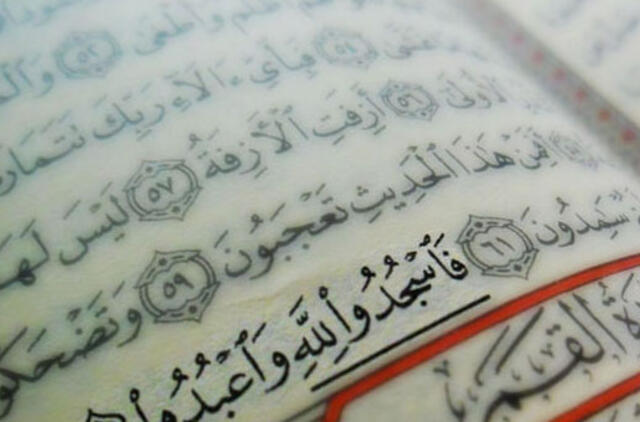 أَظْلَمَ وَأَطْغَىٰ ٥٢
غَشَّىٰ ٥٤ فَبِأَيِّ ءَالَآءِ رَبِّكَ تَتَمَارَىٰ
ٱلْأُولَىٰٓ ٥٦ أَزِفَتِ ٱلْأَزِفَةُ ٥٧ لَيْسَ لَهَا
أَفَمِنْ هَٰذَا ٱلْحَدِيثِ تَعْجَبُونَ ٥٩ وَتَضْحَكُونَ
سَٰمِدُونَ ٦١ فَٱسْجُدُوا۟ لِلَّهِ وَٱعْبُدُوا۟
القَمَر